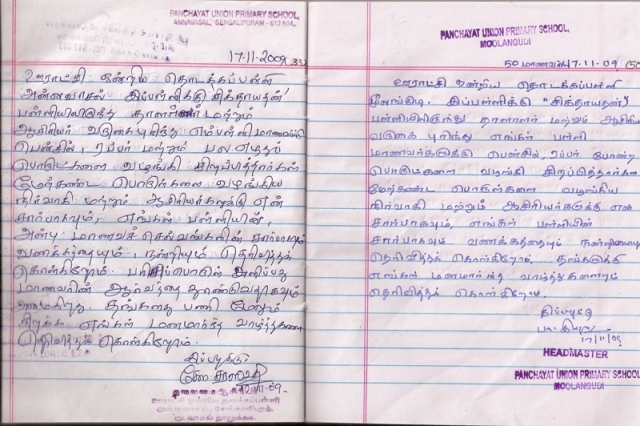 PANCHAYAT UNION PRIMARY SCHOOL,
ANNAVASAL, SENGALIPURAM - 612 604.
17-11-2009
ஊராட்சி ஒன்றிய தொடக்கப்பள்ளி
அன்னவாசல் இப்பள்ளிக்கு சித்தாயதன்
பள்ளியிலிருந்து தாளாளர் மற்றும்
ஆசிரியர் வருகைபுரிந்து எம்பள்ளி மாணவர்க்கு
பென்சில், ரப்பர் மற்றும் பல எழுதும்
பொருட்களை வழங்கி சிறப்பித்தார்கள்
மேற்கண்ட பொருட்களை வழங்கிய
நிர்வாகி மற்றும் ஆசிரியர்களுக்கு என்
சார்பாகவும், எங்கள் பள்ளியின்
அன்பு மாணவச் செல்வங்களின் சார்பாகவும்
வணக்கத்தையும், நன்றியும் தெரிவித்து
கொள்கிறோம். பரிசுப்பொருள் அளிப்பது
மாணவரின் ஆர்வத்தை தூண்டுவதாகவும்
அமைகிறது. தங்களது பணி மேலும்
சிறக்க எங்கள் மனமார்ந்த வாழ்த்துகளை
தெரிவித்துக் கொள்கிறோம்.
இப்படிக்கு
17.11.09
PANCHAYAT UNION PRIMARY SCHOOL,
MOOLANGUDI
50 மாணவர்கள் 17.11.09
ஊராட்சி ஒன்றிய தொடக்கப்பள்ளி
மூலங்குடி. இப்பள்ளிக்கு "சித்தாயதன்"
பள்ளியிலிருந்து தாளாளர் மற்றும் ஆசிரியர்
வருகை புரிந்து எங்கள் பள்ளி
மாணவர்களுக்கு பென்சில், ரப்பர் போன்ற
பொருட்களை வழங்கி சிறப்பித்தார்கள்
மேற்கண்ட பொருள்களை வழங்கிய
நிர்வாகி மற்றும் ஆசிரியர்களுக்கு என்
சார்பாகவும், எங்கள் பள்ளியின்
சார்பாகவும் வணக்கத்தையும் நன்றியையும்
தெரிவித்துக் கொள்கிறோம், தங்களுக்கு
எங்கள் மனமார்ந்த வாழ்த்துகளையும்
தெரிவித்துக் கொள்கிறோம்.
இப்படிக்கு
17/11/09
HEADMASTER
PANCHAYAT UNION PRIMARY SCHOOL
MOOLANGUDI